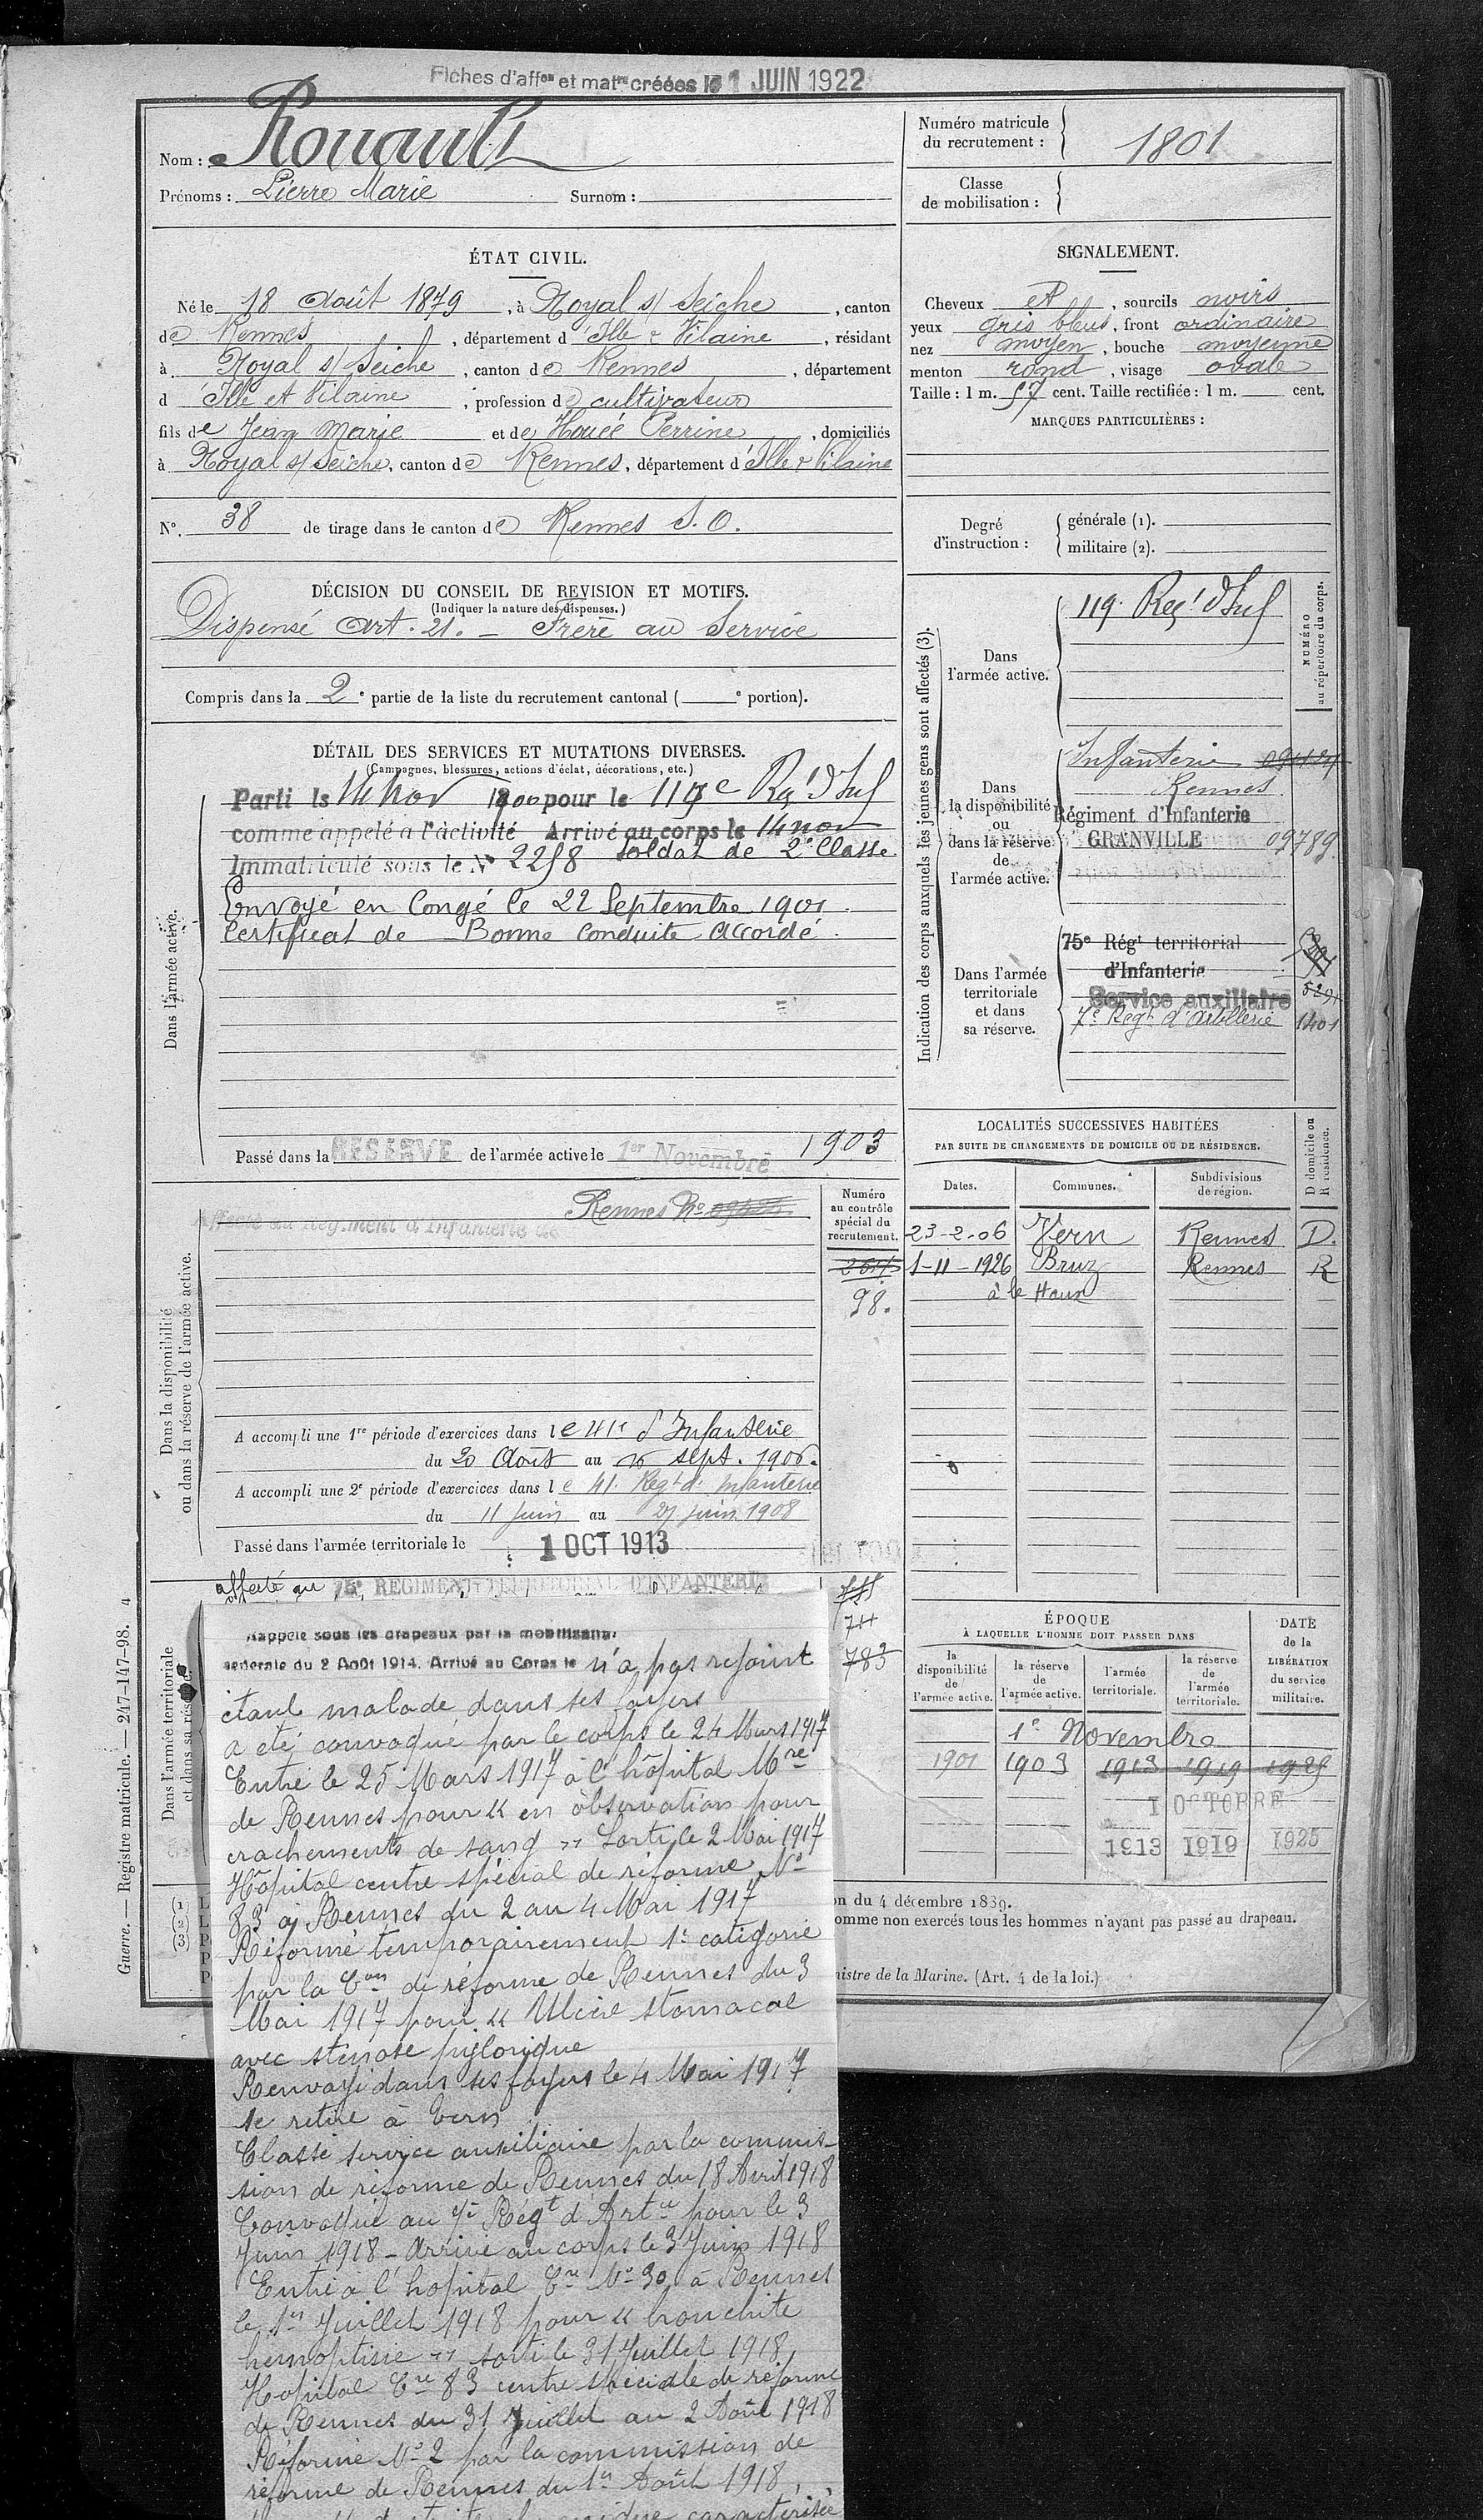 Fiches d'affon et matre créées le 1 JUIN 1922
Nom : Rouault
Prénoms : Pierre Marie Surnom :
Numéro matricule du recrutement : 1801
Classe de mobilisation :
ÉTAT CIVIL.
Né le 18 Août 1879, à Noyal s/ Seiche, canton
de Rennes, département d'Ille & Vilaine, résidant
à Noyal s/ Seiche, canton de Rennes, département
d Ille et Vilaine, profession de cultivateur
fils de Jean Marie et de Houée Perrine, domiciliés
à Noyal s/ Seiche, canton de Rennes, département d'Ille & Vilaine
N°. 38 de tirage dans le canton de Rennes S. O.
SIGNALEMENT.
Cheveux et, sourcils noirs
yeux gris bleus, front ordinaire
nez moyen, bouche moyenne
menton rond, visage ovale
Taille : 1 m. 57 cent. Taille rectifiée : 1 m. cent.
MARQUES PARTICULIÈRES :
Degré d'instruction : générale (1).
militaire (2).
DÉCISION DU CONSEIL DE REVISION ET MOTIFS.
(Indiquer la nature des dispenses.)
Dispensé Art. 21. - Frère au Service
Compris dans la 2e partie de la liste du recrutement cantonal ( e portion).
DÉTAIL DES SERVICES ET MUTATIONS DIVERSES.
(Campagnes, blessures, actions d'éclat, décorations, etc.)
Dans l'armée active.
Parti le 14 nov 1900 pour le 119e Rgt d'Inf
comme appelé à l'activité Arrivé au corps le 14 nov
Immatriculé sous le N° 2258 Soldat de 2e Classe
Envoyé en Congé le 22 Septembre 1901.
Certificat de Bonne Conduite Accordé.
Passé dans la RÉSERVE de l'armée active le 1er Novembre 1903
Indication des corps auxquels les jeunes gens sont affectés (3).
NUMÉRO au répertoire du corps.
Dans l'armée active.
119. Reg.t d'Inf
Dans la disponibilité ou dans la réserve de l'armée active.
Infanterie
Rennes
Régiment d'Infanterie
GRANVILLE 09789
Dans l'armée territoriale et dans sa réserve.
75e Régt territorial
d'Infanterie
Service auxiliaire
7e Regt d'Artillerie 1401
LOCALITÉS SUCCESSIVES HABITÉES
PAR SUITE DE CHANGEMENTS DE DOMICILE OU DE RÉSIDENCE.
Dates. Communes. Subdivisions de région. D domicile ou R résidence.
23-2-06 Vern Rennes D.
1-11-1926 Bruz Rennes R
Dans la disponibilité ou dans la réserve de l'armée active.
Numéro au contrôle spécial du recrutement.
Affecté au Régiment d'Infanterie de Rennes
98.
A accompli une 1re période d'exercices dans le 41e d'Infanterie
du 20 Août au 16 sept. 1906.
A accompli une 2e période d'exercices dans le 41. Regt d'Infanterie
du 11 juin au 27 juin 1908
Passé dans l'armée territoriale le 1 OCT 1913
Dans l'armée territoriale et dans sa réserve.
affecté au 75e REGIMENT TERRITORIAL D'INFANTERIE
783
Rappelé sous les drapeaux par la mobilisation
générale du 2 Août 1914. Arrivé au Corps le n'a pas rejoint
étant malade dans ses foyers
a été convoqué par le corps le 24 Mars 1917
Entré le 25 Mars 1917 à l'hôpital Mre
de Rennes pour « en observation pour
crachements de sang » Sorti le 2 Mai 1917
Hôpital centre spécial de réforme No
83 à Rennes du 2 au 4 Mai 1917
Réformé temporairement 1e catégorie
par la Con de réforme de Rennes du 3
Mai 1917 pour « Ulcère stomacal
avec sténose pylorique
Renvoyé dans ses foyers le 4 Mai 1917
se retire à Vern
Classé service auxiliaire par la commis-
sion de réforme de Rennes du 18 Avril 1918
Convoqué au 7e Régt d'Artie pour le 3
Juin 1918 - Arrivé au corps le 3 Juin 1918
Entré à l'hopital Cre No 30 à Rennes
le 1er Juillet 1918 pour « bronchite
hemoptisie » sorti le 31 Juillet 1918
Hopital Cre 83 centre spéciale de réforme
de Rennes du 31 Juillet au 2 Août 1918
Réformé No 2 par la commission de
réforme de Rennes du 1er Août 1918,
caractérisée
ÉPOQUE
À LAQUELLE L'HOMME DOIT PASSER DANS
la disponibilité de l'armée active. la réserve de l'armée active. l'armée territoriale. la réserve de l'armée territoriale.
DATE de la LIBÉRATION du service militaire.
1er Novembre
1901 1903 1913 1919 1925
1 OCTOBRE
1913 1919 1925
on du 4 décembre 1889.
omme non exercés tous les hommes n'ayant pas passé au drapeau.
nistre de la Marine. (Art. 4 de la loi.)
(1)
(2)
(3)
Guerre. — Registre matricule. — 247-147-98. 4